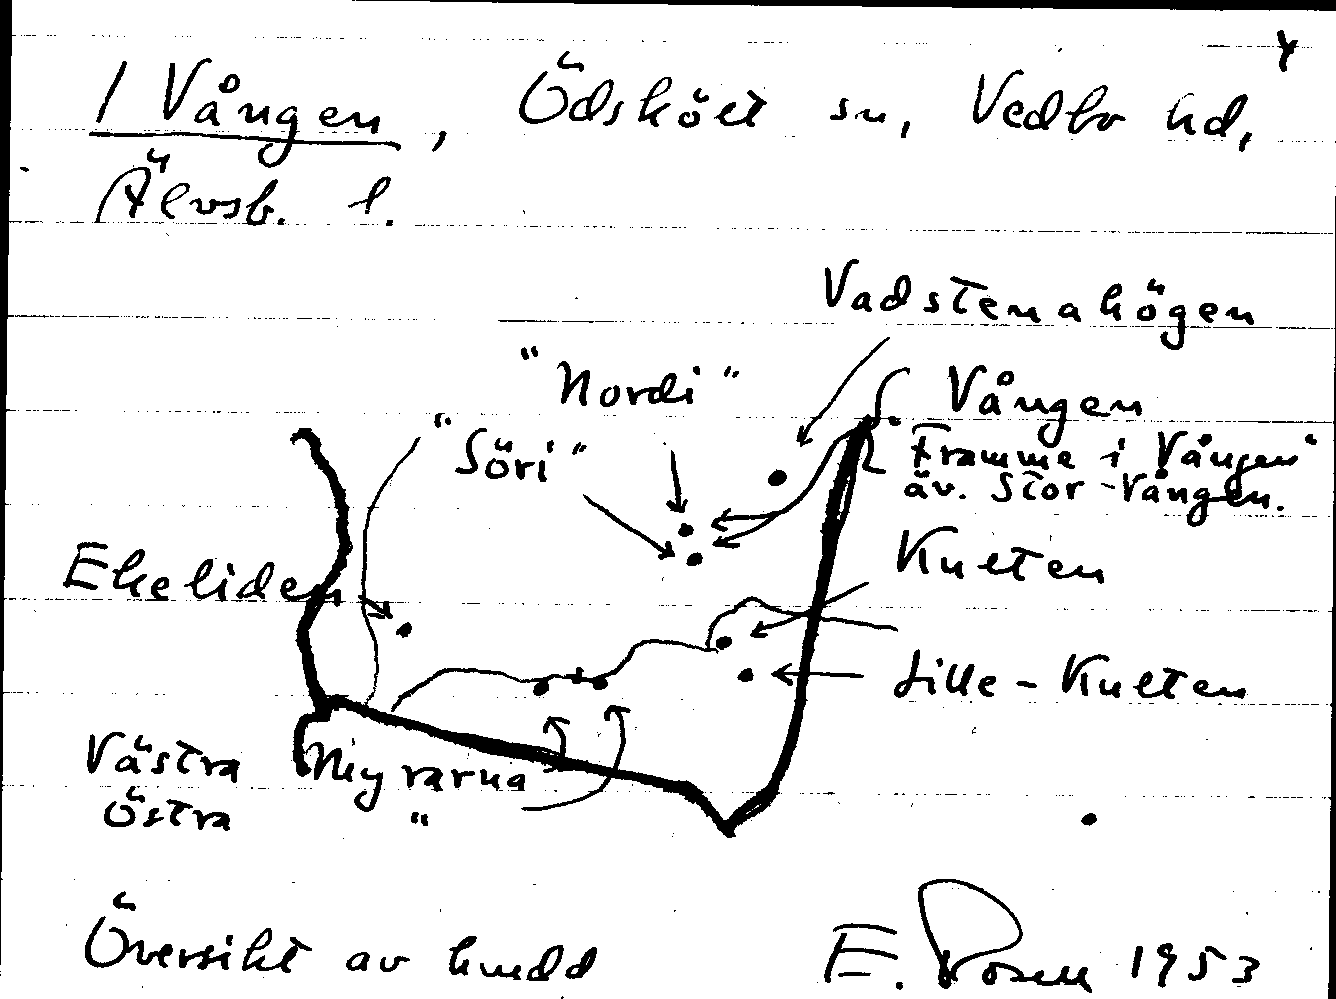 4
1 Vången, Ödskölt sn, Vedbo hd,
Älvsb. l.
Vadstenahögen
"Nordi"
Vången
"Söri"
"Framme i Vången"
äv. Stor-Vången.
Ekeliden
Kulten
Lille-Kulten
Västra Myrarna
Östra "
Översikt av
E. Rosell 1953